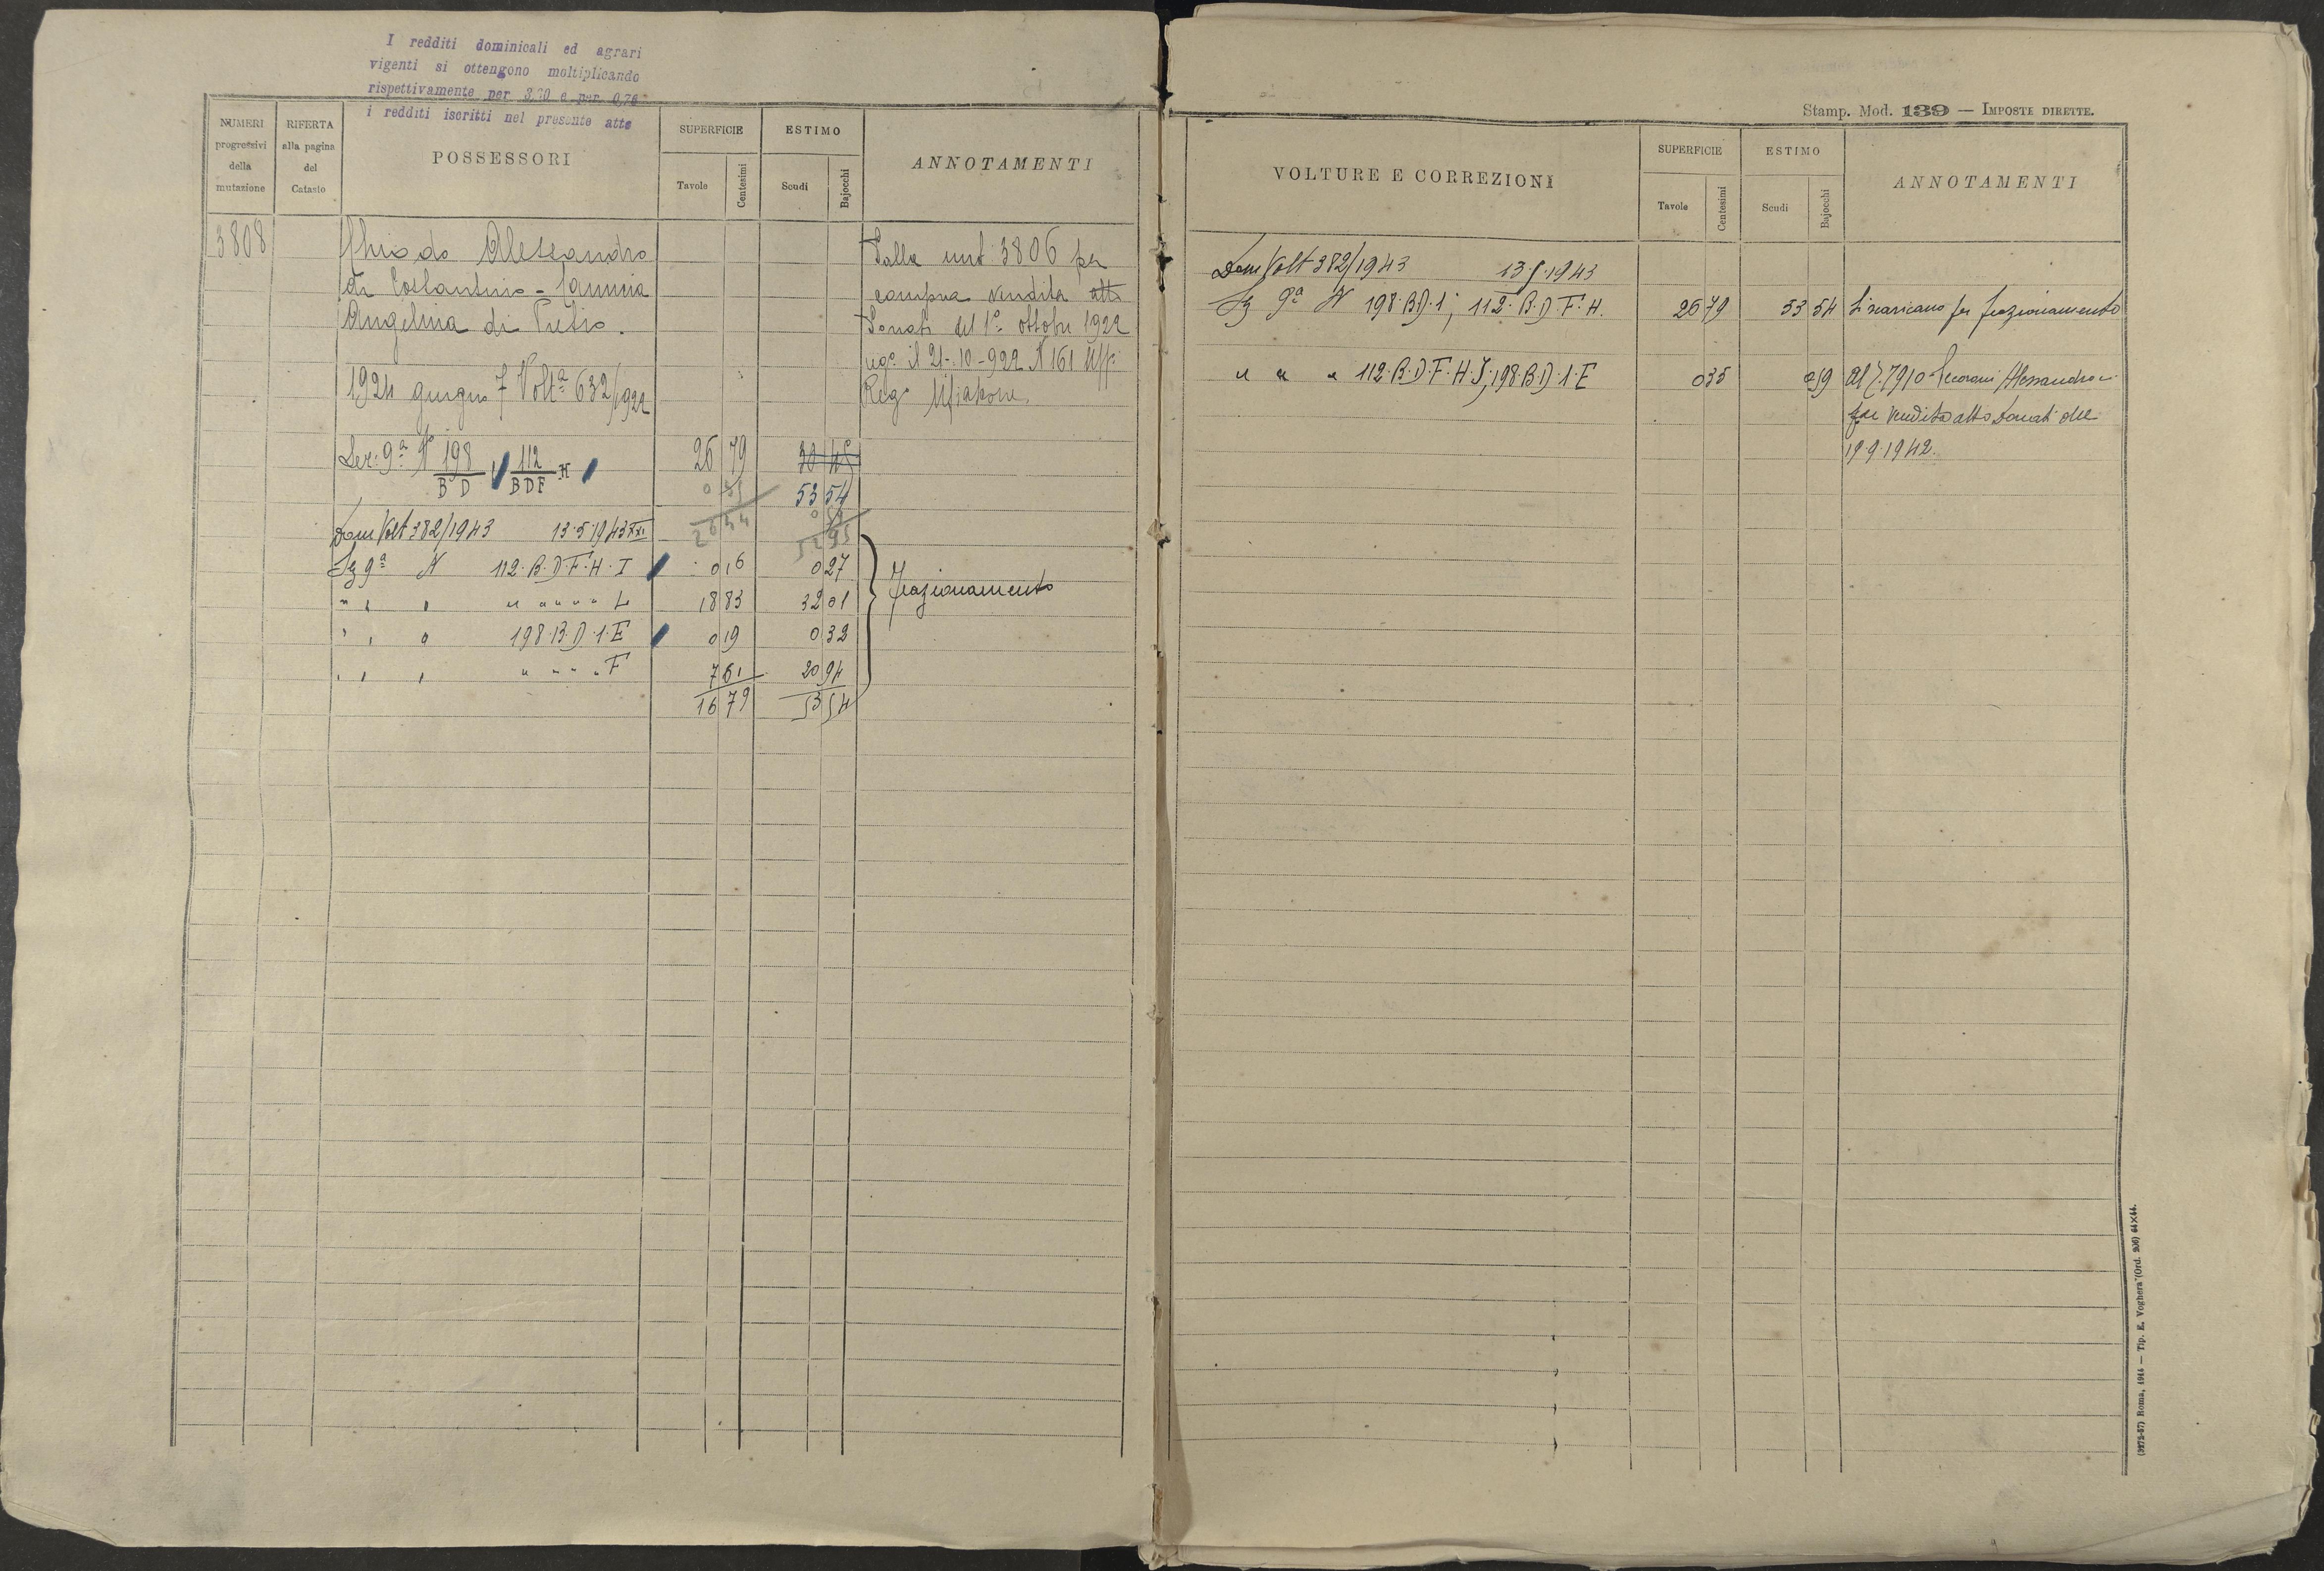 I redditi dominicali ed agrari
vigenti si ottengono moltiplicando
rispettivamente per 3,20 e per 0,76
i redditi iscritti nel presente atto
NUMERI progressivi della mutazione
RIFERTA alla pagina del Catasto
POSSESSORI
SUPERFICIE
Tavole
Centesimi
ESTIMO
Scudi
Bajocchi
ANNOTAMENTI
3808
Alessandro
di Costantino - Iannina
Angelina di Pietro.
1924 giugno 7 Volta 632/922
Sez: 9a N 198 / B D 1 112 / B D F H 26 79 30 45
0 35 53 54
26 44 0 59
52 95
Dom Volt 382/1943 13.5.1943 XXI
Sz 9a N 112.B.D.F.H.I 0 16 0 27
" " " " " " " " L 18 83 32 01
" " " 198.B.D.1.E 0 19 0 32
" " " " " " " F 7 61 20 94
16 79 53 54
Dalla mut 3806 per
compra vendita atto
Donati del 1o ottobre 1922
rego il 21-10-922 N 161 Uff:
Rego
frazionamento
Stamp. Mod. 139 — IMPOSTE DIRETTE.
VOLTURE E CORREZIONI
SUPERFICIE
Tavole
Centesimi
ESTIMO
Scudi
Bajocchi
ANNOTAMENTI
Dom Volt 382/1943 13.5.1943
Sz 9a N 198.B.D.1; 112.B.D.F.H. 26 79 53 54 Si scaricano per frazionamento
" " " 112.B.D.F.H.I; 198.B.D.1.E 0 35 0 59 Al P. 7910 Alessandro
per vendita atto Donati del
19.9.1942.
(3272-57) Roma, 1914 — Tip. E. Voghera (Ord. 206) 64×44.